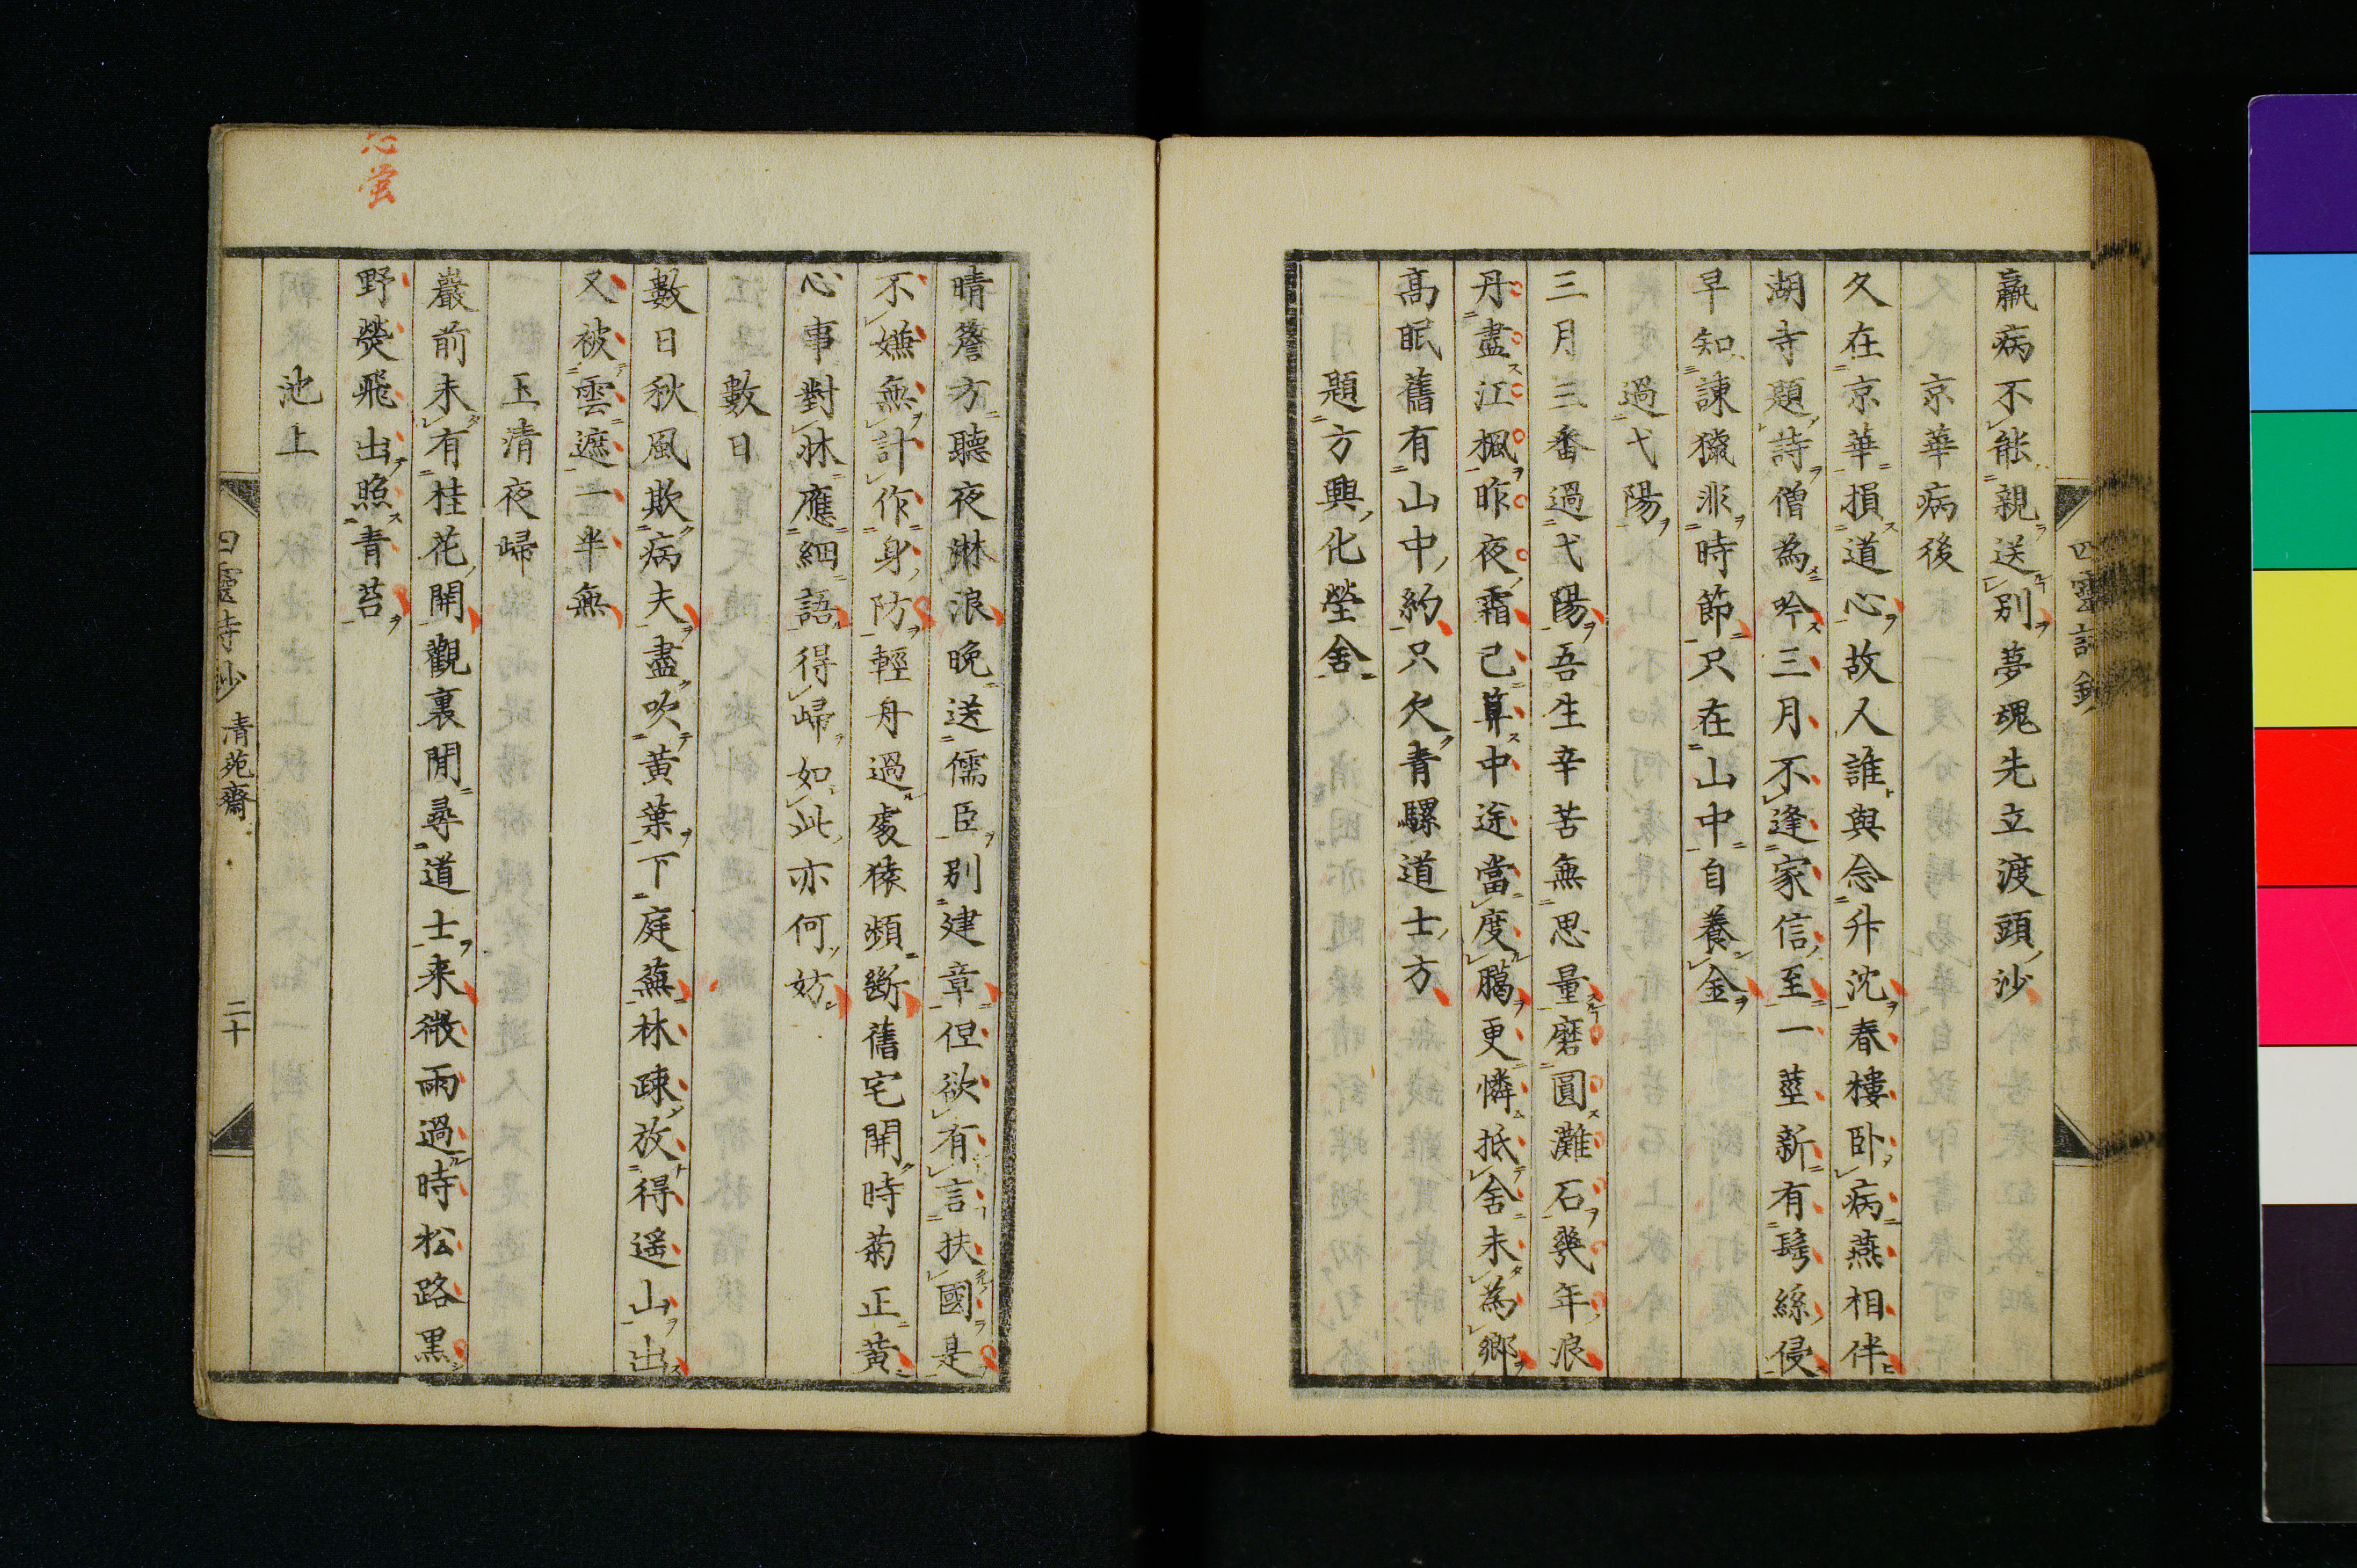 羸病不能親送別夢魂先立渡頭沙
京華病後
久在京華損道心故人誰與念升沈春樓卧病燕相伴
湖寺題詩僧為吟三月不逢家信至一莖新有鬂絲侵
早知諫獵非時節只在山中自養金
過弋陽
三月三番過弋陽吾生辛苦無思量磨圓灘石幾年浪
丹盡江楓昨夜霜已算中途當度臈更憐抵舍未為鄉
高眠舊有山中約只欠青騾道士方
題方興化瑩舍
晴簷方聽夜淋浪晚送儒臣别建章但欲有言扶國是
不嫌無計作身防輕舟過處猿頻斷舊宅開時菊正黄
心事對牀應細語得歸如此亦何妨
數日
數日秋風欺病夫盡吹黃葉下庭蕪林疎放得遥山出
又被雲遮一半無
玉清夜歸
巖前未有桂花開觀裏閒尋道士来微雨過時松路黑
野熒飛出照青苔
池上
四靈詩鈔 清苑齋 二十
螢
四靈詩鈔